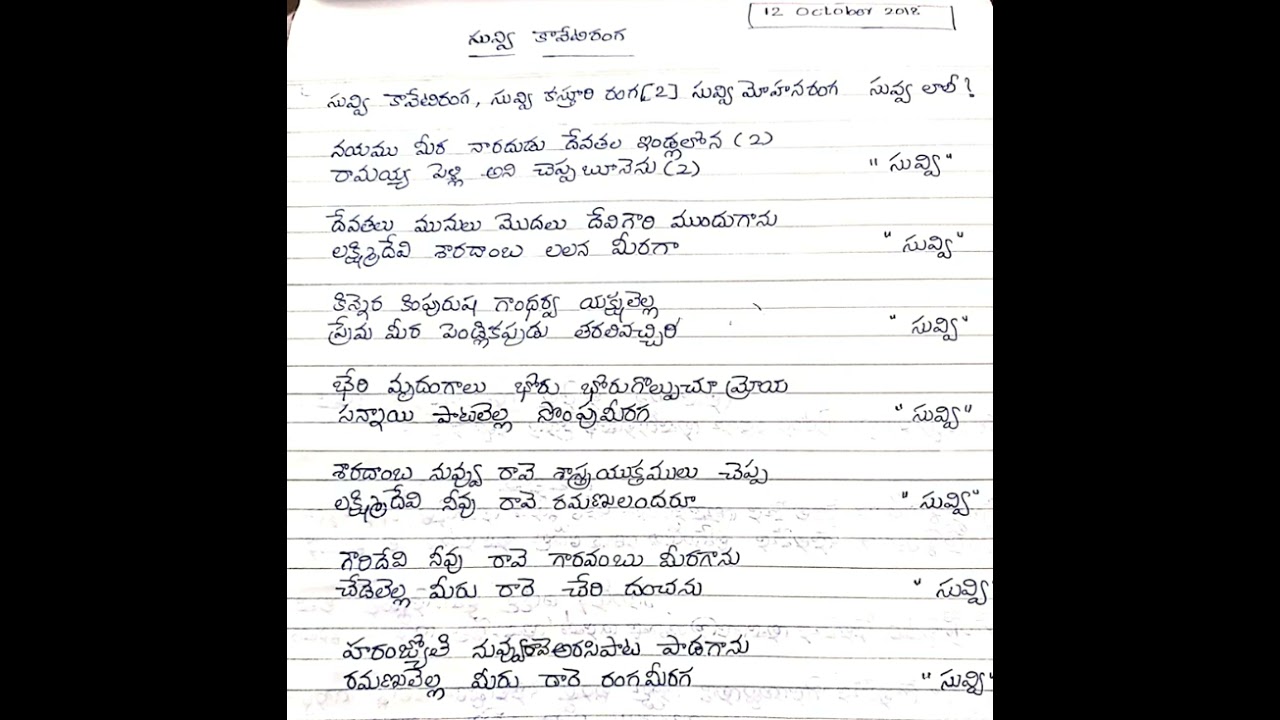 12 October 2018
సువ్వి కావేటిరంగ
సువ్వి కావేటిరంగ, సువ్వి కస్తూరి రంగ[2] సువ్వి మోహనరంగ సువ్వ లాలీ!
నయము మీర నారదుడు దేవతల ఇండ్లలోన (2)
రామయ్య పెళ్లి అని చెప్ప బూనెను (2) "సువ్వి"
దేవతలు మునులు మొదలు దేవిగౌరి ముందుగాను
లక్ష్మిదేవి శారదాంబ లలన మీరగా "సువ్వి"
కిన్నెర కింపురుష గాంధర్వ యక్షులెల్ల
ప్రేమ మీర పెండ్లికపుడు తరలివచ్చిరి "సువ్వి"
భేరి మృదంగాలు భోరు భోరుగొల్పుచూ మ్రోయ
సన్నాయి పాటలెల్ల సొంపుమీరగ "సువ్వి"
శారదాంబ నువ్వు రావె శాస్త్రయుక్తములు చెప్ప
లక్ష్మిదేవి నీవు రావె రమణులందరూ "సువ్వి"
గౌరిదేవి నీవు రావె గారవంబు మీరగాను
చేడెలెల్ల మీరు రారె చేరి దంచను "సువ్వి
హరంజ్యోతి నువ్వురావెఅరసిపాట పాడగాను
రమణులెల్ల మీరు రారె రంగమీరగ "సువ్వి"